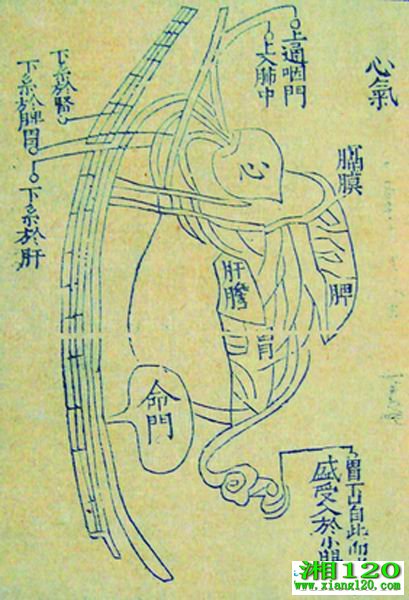 心氣
上通咽門
上入肺中
下系於腎
下系於脾胃
下系於肝
心
膈膜
脾
肝
膽
胃
命門
胃下口自此而
盛受入於小腸
湘120
www.xiang120.com